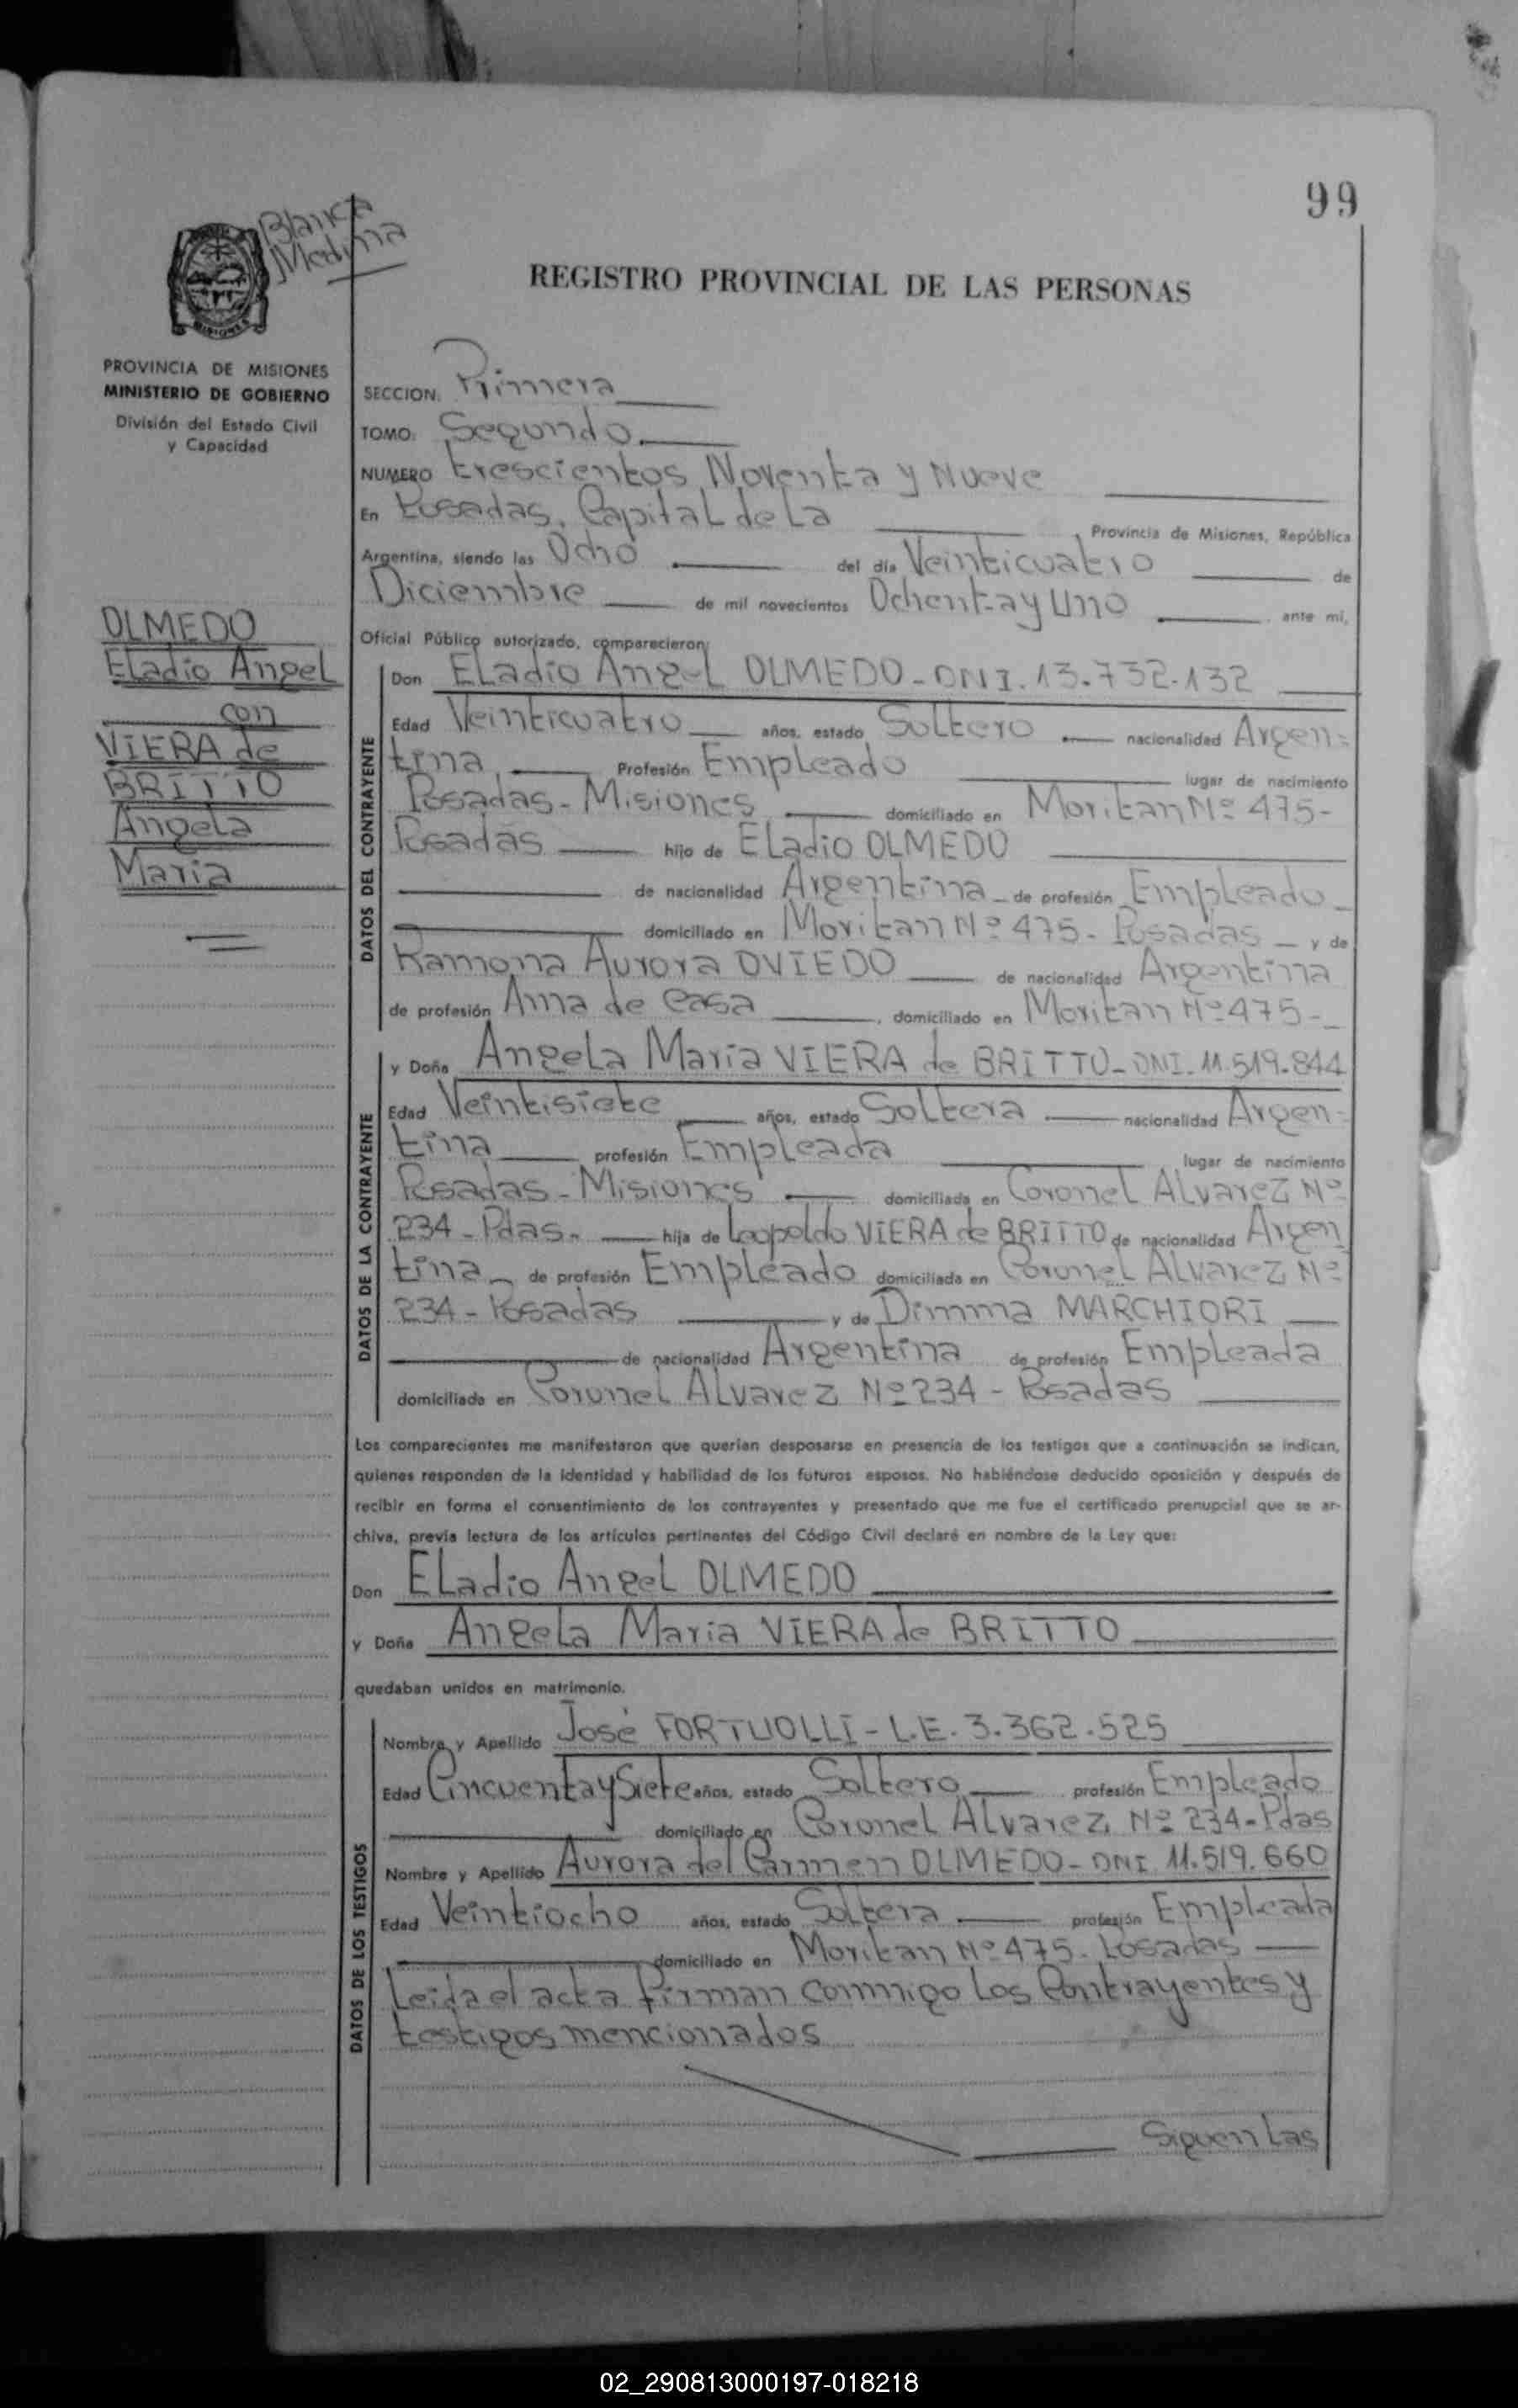 99
Blanca
Medina
REGISTRO PROVINCIAL DE LAS PERSONAS
MISIONES
PROVINCIA DE MISIONES
MINISTERIO DE GOBIERNO
División del Estado Civil
y Capacidad
OLMEDO
Eladio Angel
con
VIERA de
BRITTO
Angela
Maria
SECCION: Primera
TOMO: Segundo
NUMERO trescientos Noventa y Nueve
En Posadas, Capital de La Provincia de Misiones, República
Argentina, siendo las Ocho del día Veinticuatro de
Diciembre de mil novecientos Ochenta y Uno ante mi,
Oficial Público autorizado, comparecieron:
DATOS DEL CONTRAYENTE
Don Eladio Angel OLMEDO - DNI. 13.732.132
Edad Veinticuatro años, estado Soltero nacionalidad Argen=
tina, Profesión Empleado lugar de nacimiento
Posadas - Misiones domiciliado en Moritan Nº 475-
Posadas hijo de Eladio OLMEDO
de nacionalidad Argentina - de profesión Empleado
domiciliado en Moritan Nº 475 - Posadas - y de
Ramona Aurora OVIEDO de nacionalidad Argentina
de profesión Ama de Casa, domiciliado en Moritan Nº 475 -
DATOS DE LA CONTRAYENTE
y Doña Angela Maria VIERA de BRITTO - DNI. 11.519.844
Edad Veintisiete años, estado Soltera nacionalidad Argen=
tina profesión Empleada lugar de nacimiento
Posadas - Misiones domiciliada en Coronel Alvarez Nº
234 - Pdas. hija de Leopoldo VIERA de BRITTO de nacionalidad Argen
tina - de profesión Empleado domiciliado en Coronel Alvarez Nº
234 - Posadas y de Dimma MARCHIORI
de nacionalidad Argentina de profesión Empleada
domiciliada en Coronel Alvarez Nº 234 - Posadas
Los comparecientes me manifestaron que querían desposarse en presencia de los testigos que a continuación se indican,
quienes responden de la identidad y habilidad de los futuros esposos. No habiéndose deducido oposición y después de
recibir en forma el consentimiento de los contrayentes y presentado que me fue el certificado prenupcial que se ar-
chiva, previa lectura de los artículos pertinentes del Código Civil declaré en nombre de la Ley que:
Don Eladio Angel OLMEDO
y Doña Angela Maria VIERA de BRITTO
quedaban unidos en matrimonio.
DATOS DE LOS TESTIGOS
Nombre y Apellido José FORTUOLLI - L.E. 3.362.525
Edad Cincuenta y Siete años, estado Soltero profesión Empleado
domiciliado en Coronel Alvarez Nº 234 - Pdas
Nombre y Apellido Aurora del Carmen OLMEDO - DNI 11.519.660
Edad Veintiocho años, estado Soltera profesión Empleada
domiciliado en Moritan Nº 475 - Posadas
Leida el acta firman conmigo Los Contrayentes y
testigos mencionados
Siguen Las
02_290813000197-018218